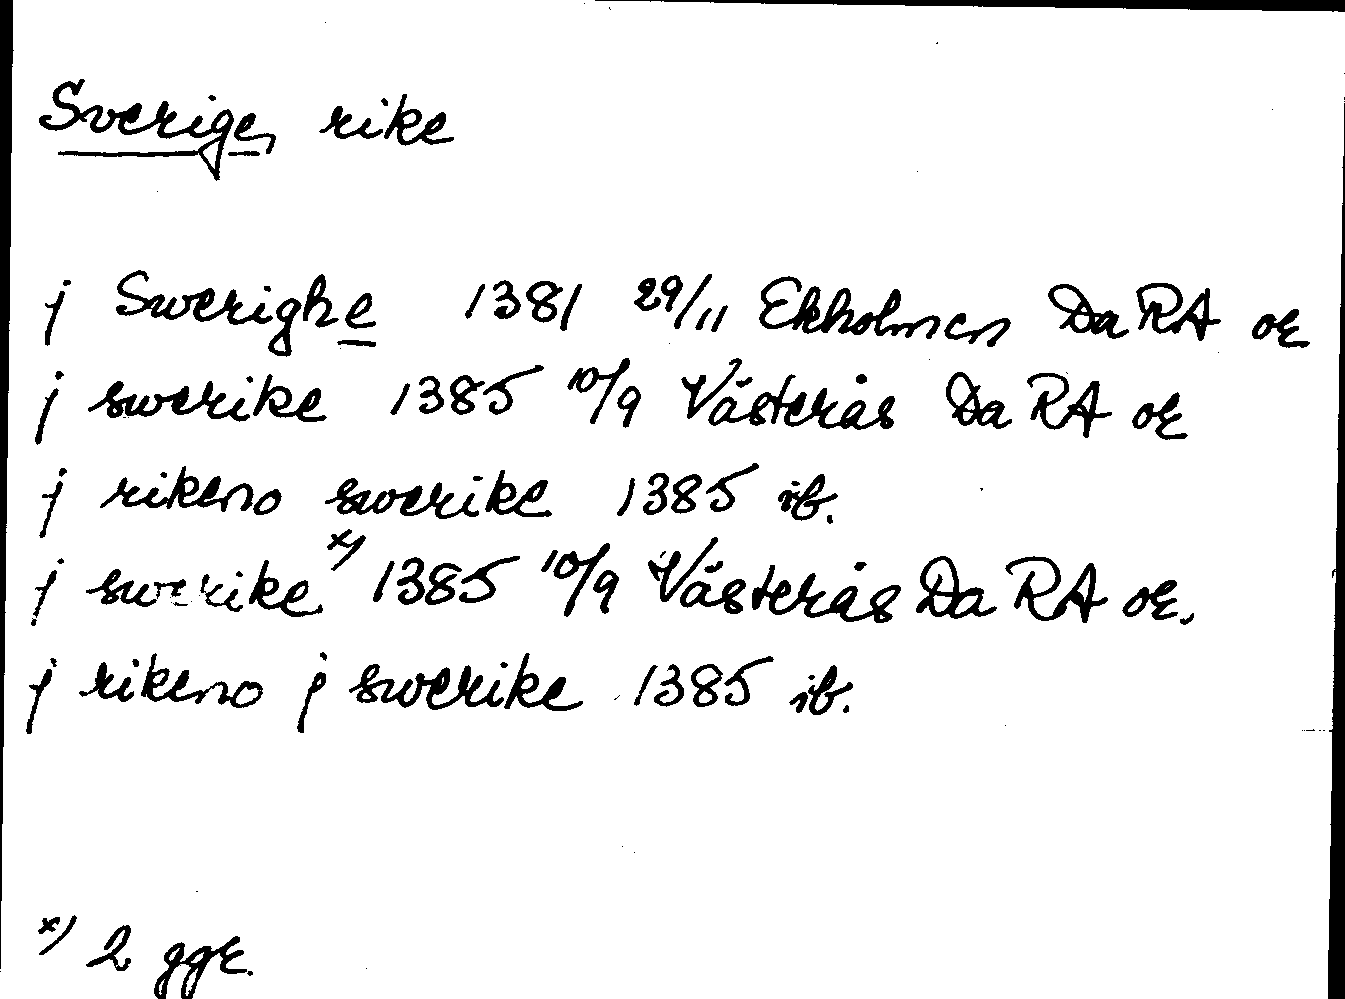 Sverige, rike
j Swerighe 1381 29/11 Ekholmen Da RA or
j swerike 1385 10/9 Västerås Da RA or
j rikeno swerike 1385 ib.
j swerike x) 1385 10/9 Västerås Da RA or.
j rikeno j swerike 1385 ib.
x) 2 ggr.